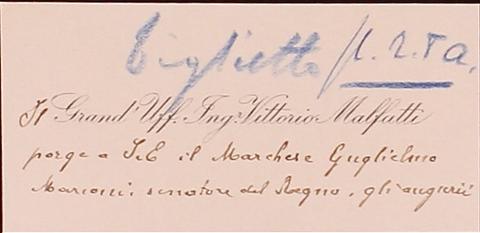 Biglietto p. r. T a.
Il Grand' Uff. Ing. Vittorio Malfatti
porge a S.E il Marchese Guglielmo
Marconi senatore del Regno, gli augurii